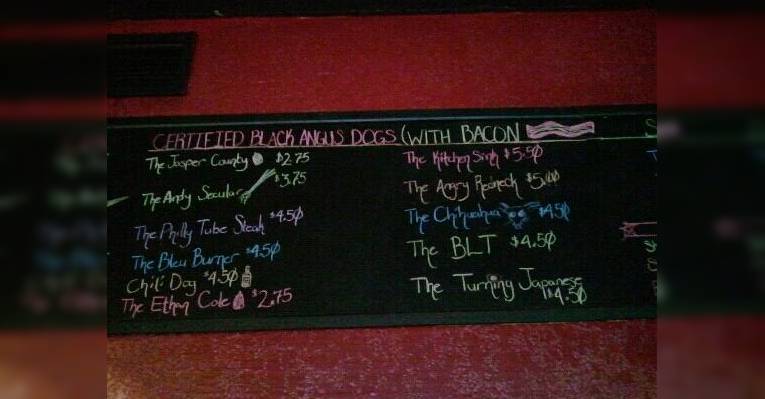 CERTIFIED BLACK ANGUS DOGS (WITH BACON
The Jasper County $2.75
The Andy Secular $3.75
The Philly Tube Steak $4.50
The Bleu Burner $4.50
Chili Dog $4.50
The Ethan Cole $2.75
The Kitchen Sink $5.50
The Angry Redneck $5.00
The Chihuahua $4.50
The BLT $4.50
The Turning Japanese
$4.50